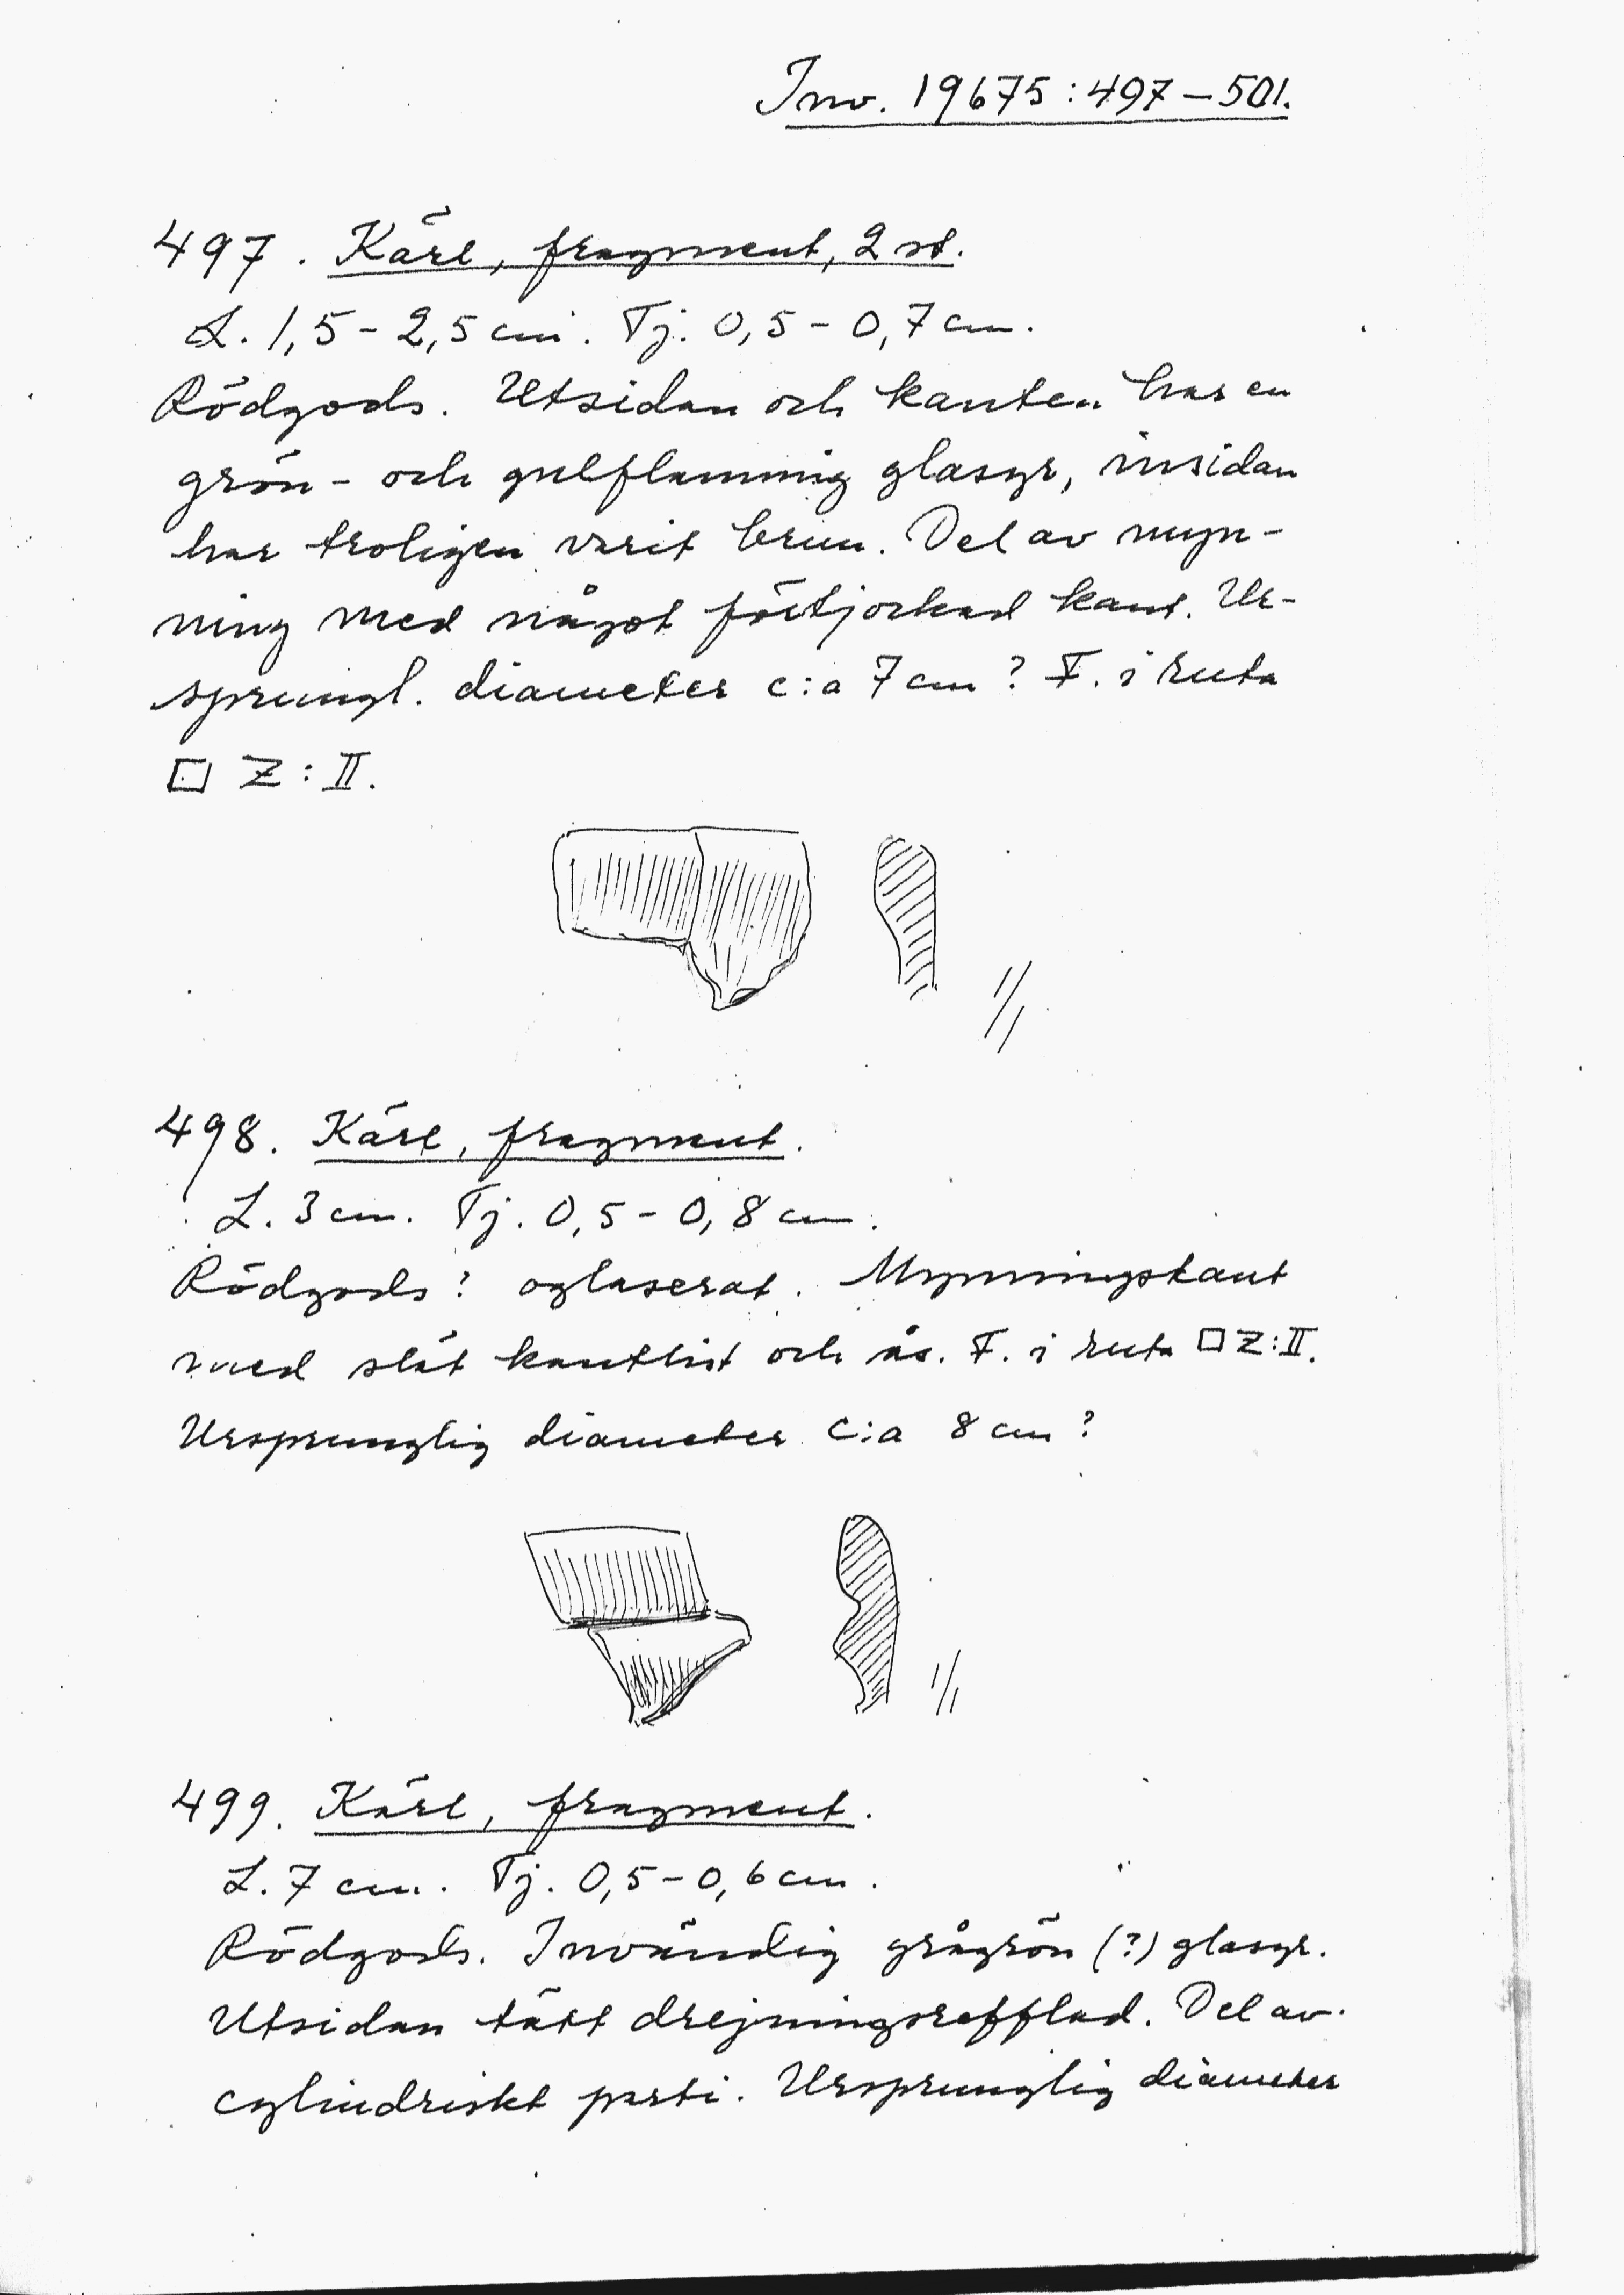 Inv. 19675:497–501.
497. Kärl, fragment, 2 st.
L. 1,5 – 2,5 cm. Tj. 0,5 – 0,7 cm.
Rödgods. Utsidan och kanten har en
grön- och gulflammig glasyr, insidan
har troligen varit brun. Del av myn-
ning med något förtjockad kant. Ur-
sprungl. diameter c:a 7 cm? F. i ruta
□ Z:II.
1/1
498. Kärl, fragment.
L. 3 cm. Tj. 0,5 – 0,8 cm.
Rödgods? oglaserat. Mynningskant
med slät kantlist och ås. F. i ruta □ Z:II.
Ursprunglig diameter c:a 8 cm?
1/1
499. Kärl, fragment.
L. 7 cm. Tj. 0,5 – 0,6 cm.
Rödgods. Invändig grågrön (?) glasyr.
Utsidan tätt drejningsrefflad. Del av
cylindriskt parti. Ursprunglig diameter